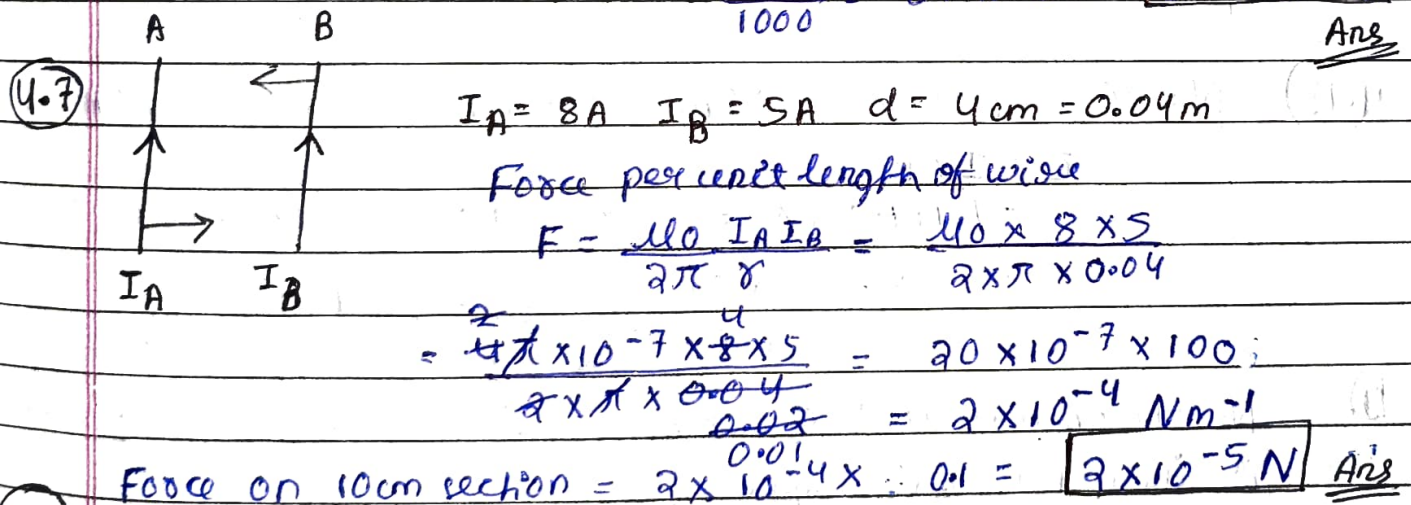 1000
Ans
A B
4.7
I_A = 8A I_B = 5A d = 4 cm = 0.04 m
Force per unit length of wire
F = μ0 I_A I_B / 2π r = μ0 × 8 × 5 / 2 × π × 0.04
I_A I_B
= 2 4π × 10^-7 × 8 4 × 5 / 2 × π × 0.04 0.02 0.01 = 20 × 10^-7 × 100
= 2 × 10^-4 Nm^-1
Force on 10cm section = 2 × 10^-4 × 0.1 = 2 × 10^-5 N Ans